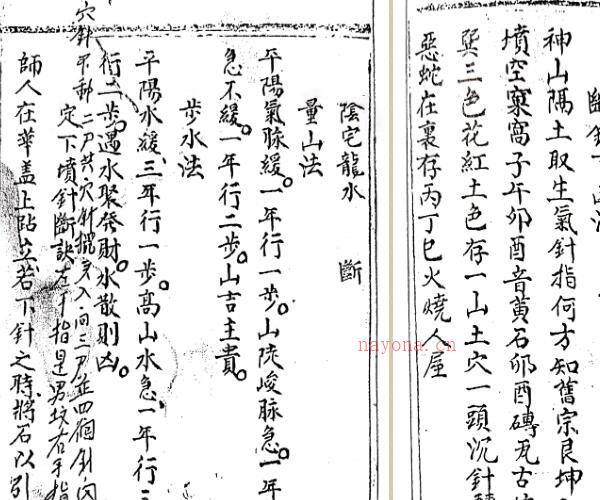 神山隅土取生氣針指何方知舊宗艮坤
墳空窠窩子午卯酉音黃石卯酉磚瓦古
巽三色花紅土色存一山土穴一頭沉針
惡蛇在裏存丙丁巳火燒人屋
陰宅龍水 斷
量山法
平陽氣脉緩。一年行一步。山陡峻脉急。一年
急不緩。一年行二步。山吉主貴。
步水法
平陽水緩、三年行一步。髙山水急、一年行三
行二步。遇水聚發財。水散則凶。
穴針不動二尸共穴針擺 入一向三尸並四個針
定下墳針斷訣左手指是男坟右手指
師人在華盖上跕立若下針之時將石以引
nayona.cn